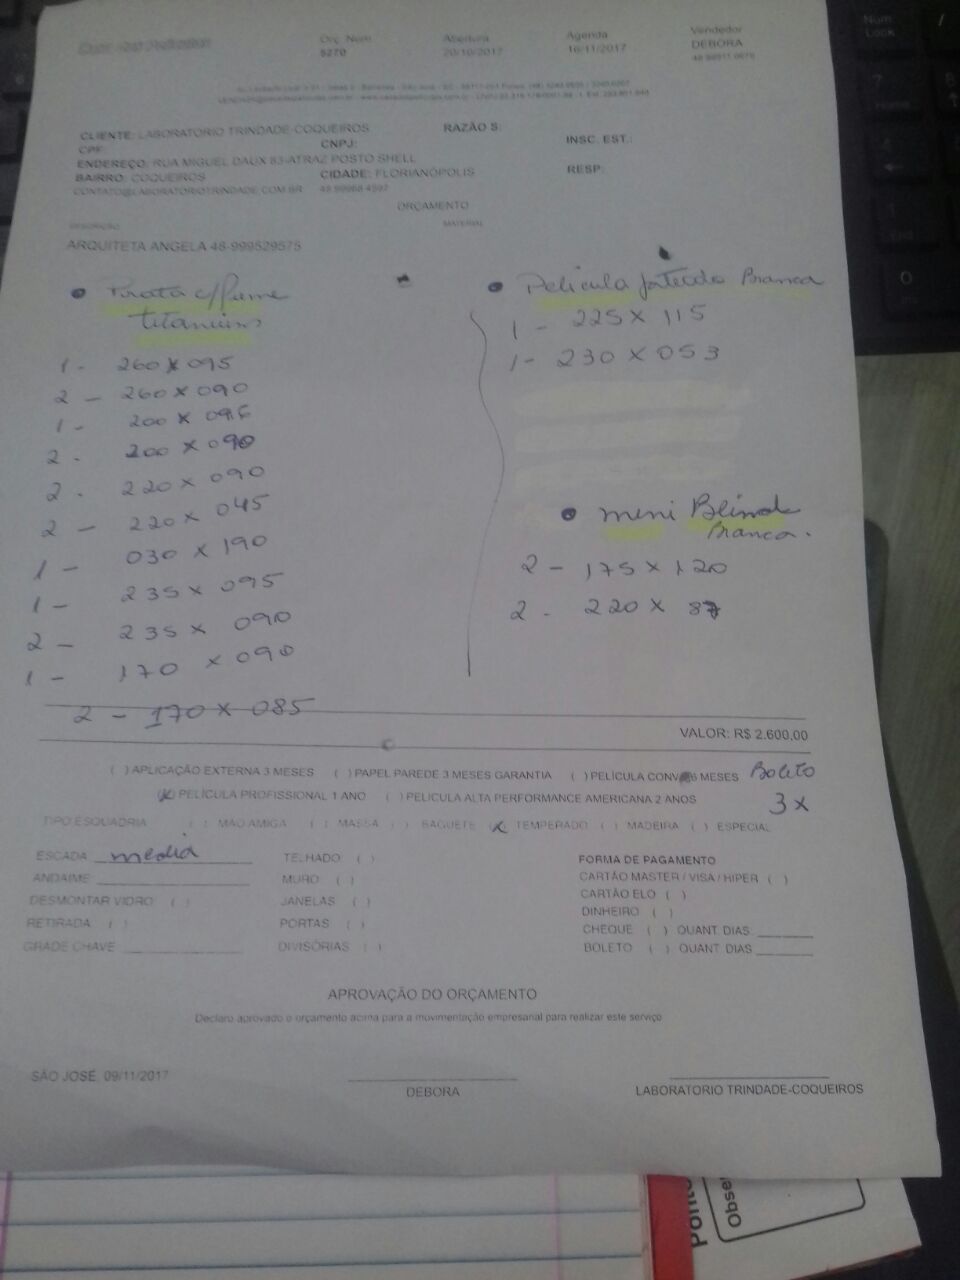 Orç. Num. Abertura Agenda Vendedor
5270 20/10/2017 16/11/2017 DEBORA
CLIENTE: LABORATORIO TRINDADE-COQUEIROS RAZÃO S:
CPF: CNPJ: INSC. EST.:
ENDEREÇO: RUA MIGUEL DAUX 83-ATRAZ POSTO SHELL
BAIRRO: COQUEIROS CIDADE: FLORIANÓPOLIS RESP:
CONTATO@LABORATORIOTRINDADE.COM.BR
ORÇAMENTO
DESCRIÇÃO MATERIAL
ARQUITETA ANGELA 48-999529575
Prata c/fume
titaniuns
1- 260 x 095
2 - 260 x 090
1 - 200 x 095
2 - 200 x 090
2 - 220 x 090
2 - 220 x 045
1 - 030 x 190
1 - 235 x 095
2 - 235 x 090
1 - 170 x 090
2 - 170 x 085
Pelicula jateado Branca
1 - 225 x 115
1 - 230 x 053
meni Blinde
Branca.
2 - 175 x 120
2 - 220 x 87
VALOR: R$ 2.600,00
( ) APLICAÇÃO EXTERNA 3 MESES ( ) PAPEL PAREDE 3 MESES GARANTIA ( ) PELÍCULA CONV 6 MESES Boleto
(x) PELÍCULA PROFISSIONAL 1 ANO ( ) PELICULA ALTA PERFORMANCE AMERICANA 2 ANOS 3x
TIPO ESQUADRIA ( ) MAO AMIGA ( ) MASSA ( ) BAGUETE (x) TEMPERADO ( ) MADEIRA ( ) ESPECIAL
ESCADA media TELHADO ( ) FORMA DE PAGAMENTO
ANDAIME MURO ( ) CARTÃO MASTER / VISA / HIPER ( )
DESMONTAR VIDRO ( ) JANELAS ( ) CARTÃO ELO ( )
RETIRADA ( ) PORTAS ( ) DINHEIRO ( )
GRADE CHAVE DIVISÓRIAS ( ) CHEQUE ( ) QUANT. DIAS
BOLETO ( ) QUANT. DIAS
APROVAÇÃO DO ORÇAMENTO
Declaro aprovado o orçamento acima para a movimentação empresarial para realizar este serviço
SÃO JOSÉ, 09/11/2017
DEBORA LABORATORIO TRINDADE-COQUEIROS
Ponto
Obser
Num
Lock